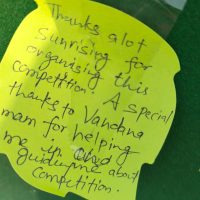 Thanks alot
Sunrising for
organising this
competition. A special
thanks to Vandana
mam for helping
me in and
guiding me about
Competition.